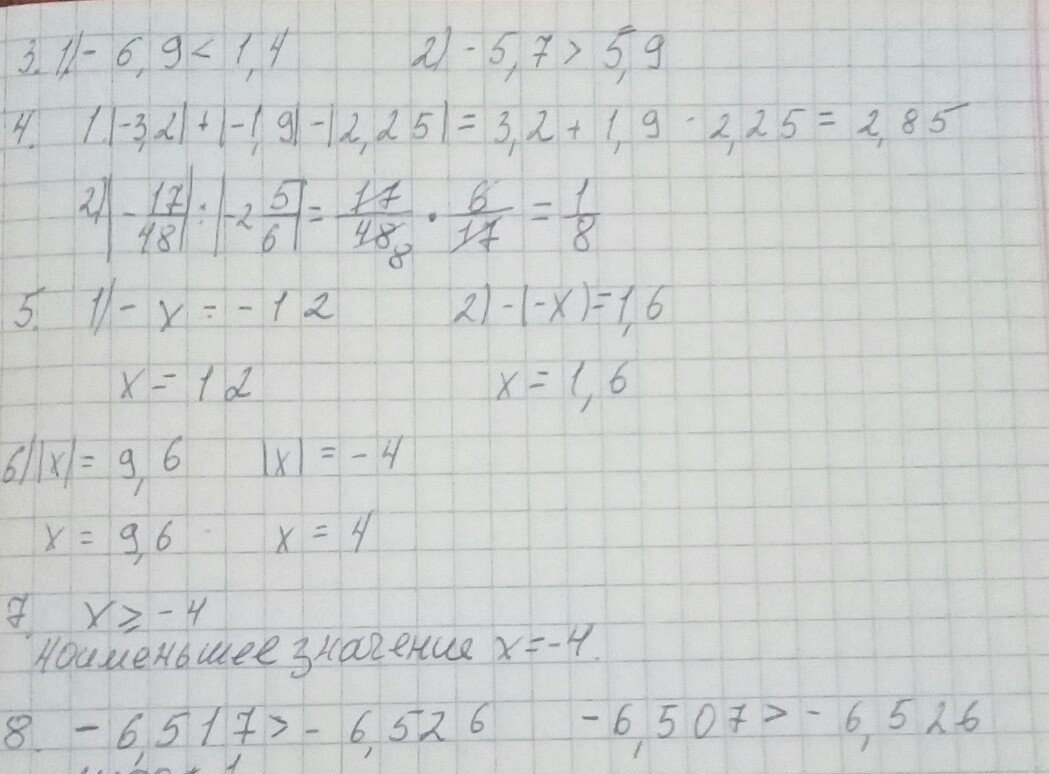 3. 1) - 6,9 < 1,4 2) - 5,7 > 5,9
4. 1. |-3,2| + |-1,9| - |2,25| = 3,2 + 1,9 - 2,25 = 2,85
2) |-17/48| : |-2 5/6| = 17/48 8 · 6/17 = 1/8
5. 1) - x = - 12 2) -(-x) = 1,6
x = 12 x = 1,6
6) |x| = 9,6 |x| = - 4
x = 9,6 x = 4
7. x ≥ - 4
Наименьшее значение x = -4.
8. - 6,517 > - 6,526 - 6,507 > - 6,526